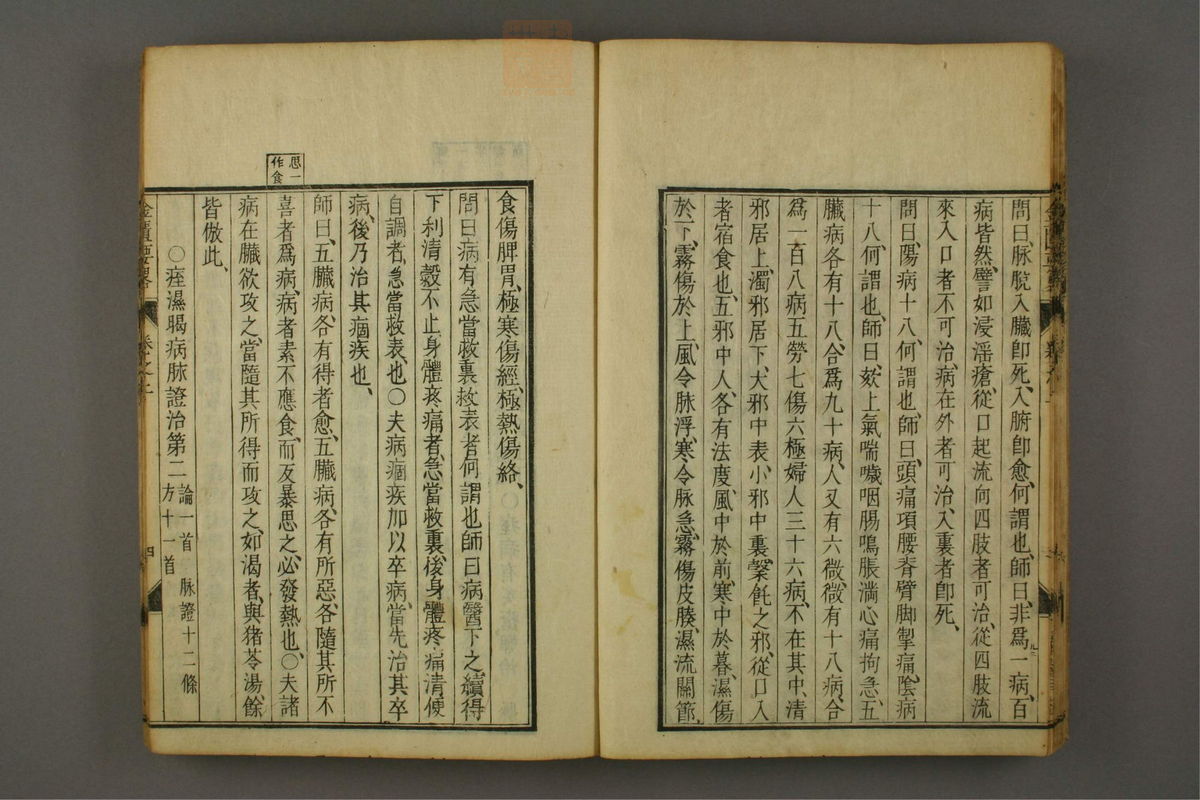 問曰、脉脫入臟卽死、入腑卽愈、何謂也、師曰、非爲一病、百
病皆然、譬如浸滛瘡、從口起流向四肢者可治、從四肢流
來入口者不可治、病在外者可治、入裏者卽死、
問曰、陽病十八、何謂也、師曰、頭痛項腰脊臂脚掣痛、陰病
十八、何謂也、師曰、欬上氣喘噦咽腸鳴脹滿心痛拘急、五
臟病各有十八、合爲九十病、人又有六微、微有十八病、合
爲一百八病、五勞七傷六極婦人三十六病、不在其中、清
邪居上、濁邪居下、大邪中表、小邪中裏、䅽飥之邪、從口入
者宿食也、五邪中人、各有法度、風中於前、寒中於暮、濕傷
於下、霧傷於上、風令脉浮、寒令脉急、霧傷皮腠、濕流關節、
食傷脾胃、極寒傷經、極熱傷絡、
問曰病有急當救裏救表者何謂也師曰病醫下之續得
下利清穀不止、身體疼痛者、急當救裏、後身體疼痛、清便
自調者、急當救表、也〇夫病痼疾加以卒病、當先治其卒
病、後乃治其痼疾也、
師曰、五臟病、各有得者愈、五臟病、各有所惡、各隨其所不
喜者爲病、病者素不應食、而反暴思之、必發熱也、〇夫諸
病在臟欲攻之、當隨其所得而攻之、如渴者、與猪苓湯、餘
皆倣此、
思一
作食
〇痙濕暍病脉證治第二
論一首 脉證十二條
方十一首
金匱要畧
卷之上
四